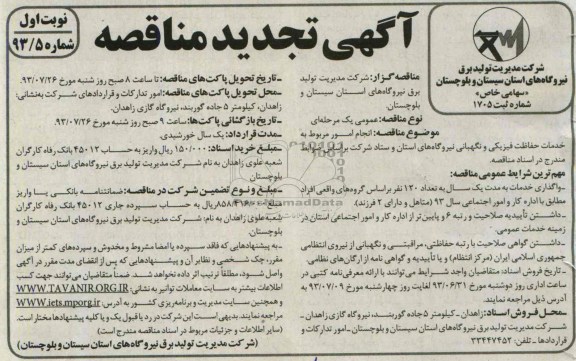 نوبت اول
شماره ۹۳/۵
آگهی تجدید مناقصه
شرکت مدیریت تولید برق
نیروگاه‌های استان سیستان و بلوچستان
«سهامی خاص»
شماره ثبت ۱۷۰۵
مناقصه گزار: شرکت مدیریت تولید
برق نیروگاه‌های استان سیستان و
بلوچستان
نوع مناقصه: عمومی یک مرحله‌ای
موضوع مناقصه: انجام امور مربوط به
خدمات حفاظت فیزیکی و نگهبانی نیروگاه‌های استان و ستاد شرکت
مندرج در اسناد مناقصه.
مهم‌ترین شرایط عمومی مناقصه:
-واگذاری خدمات به مدت یک سال به تعداد ۱۲۰ نفر براساس گروه‌های واقعی افراد
مطابق با اداره کار و امور اجتماعی سال ۹۳ (متاهل و دارای ۲ فرزند).
-داشتن تأییدیه صلاحیت و رتبه ۶ و پایین‌تر از اداره کار و امور اجتماعی استان در
زمینه خدمات عمومی.
-داشتن گواهی صلاحیت یا رتبه حفاظتی، مراقبتی و نگهبانی از نیروی انتظامی
جمهوری اسلامی ایران (مرکز انتظام) و یا تأییدیه و گواهی نامه از ارگان‌های نظامی.
-تاریخ فروش اسناد: متقاضیان واجد شرایط می‌توانند با ارائه معرفی‌نامه کتبی در
ساعت اداری روز دوشنبه مورخ ۹۳/۰۶/۳۱ لغایت روز چهارشنبه مورخ ۹۳/۰۷/۰۹ به
آدرس ذیل مراجعه نمایند.
-محل فروش اسناد: زاهدان - کیلومتر ۵ جاده گوربند، نیروگاه گازی زاهدان -
شرکت مدیریت تولید برق نیروگاه‌های استان سیستان و بلوچستان - امور تدارکات و
قراردادها - تلفن: ۳۳۴۴۷۴۵۲
-تاریخ تحویل پاکت‌های مناقصه: تا ساعت ۸ صبح روز شنبه مورخ ۹۳/۰۷/۲۶.
-محل تحویل پاکت‌های مناقصه: امور تدارکات و قراردادهای شرکت به‌نشانی:
زاهدان، کیلومتر ۵ جاده گوربند، نیروگاه گازی زاهدان.
-تاریخ بازگشائی پاکت‌ها: ساعت ۹ صبح روز شنبه مورخ ۹۳/۰۷/۲۶.
-مدت قرارداد: یک سال خورشیدی.
-مبلغ خرید اسناد: ۱۵۰/۰۰۰ ریال واریز به حساب ۴۵۰۱۲ بانک رفاه کارگران
شعبه علوی زاهدان به نام شرکت مدیریت تولید برق نیروگاه‌های استان سیستان و
بلوچستان
-مبلغ و نوع تضمین شرکت در مناقصه: ضمانتنامه بانکی یا واریز
مبلغ ریال به حساب سپرده جاری ۴۵۰۱۲ بانک رفاه کارگران
شعبه علوی زاهدان به نام: شرکت مدیریت تولید برق نیروگاه‌های استان سیستان و
بلوچستان
-به پیشنهادهایی که فاقد سپرده یا امضا مشروط و مخدوش و سپرده‌های کمتر از میزان
مقرر، چک شخصی و نظایر آن و پیشنهادهایی که پس از انقضای مدت مقرر در آگهی
واصل شود، مطلقاً ترتیب اثر داده نخواهد شد. ضمناً متقاضیان می‌توانند جهت کسب
اطلاعات بیشتر به سایت معاملات توانیر به نشانی: WWW.TAVANIR.ORG.IR
و همچنین سایت مدیریت و برنامه‌ریزی کشور به آدرس: WWW.iets.mporg.ir
مراجعه نمایند. بدیهی است این شرکت در رد یا قبول یک و یا کلیه پیشنهادها مختار است.
(سایر اطلاعات و جزئیات مربوط در اسناد مناقصه مندرج است)
(شرکت مدیریت تولید برق نیروگاه‌های استان سیستان و بلوچستان)